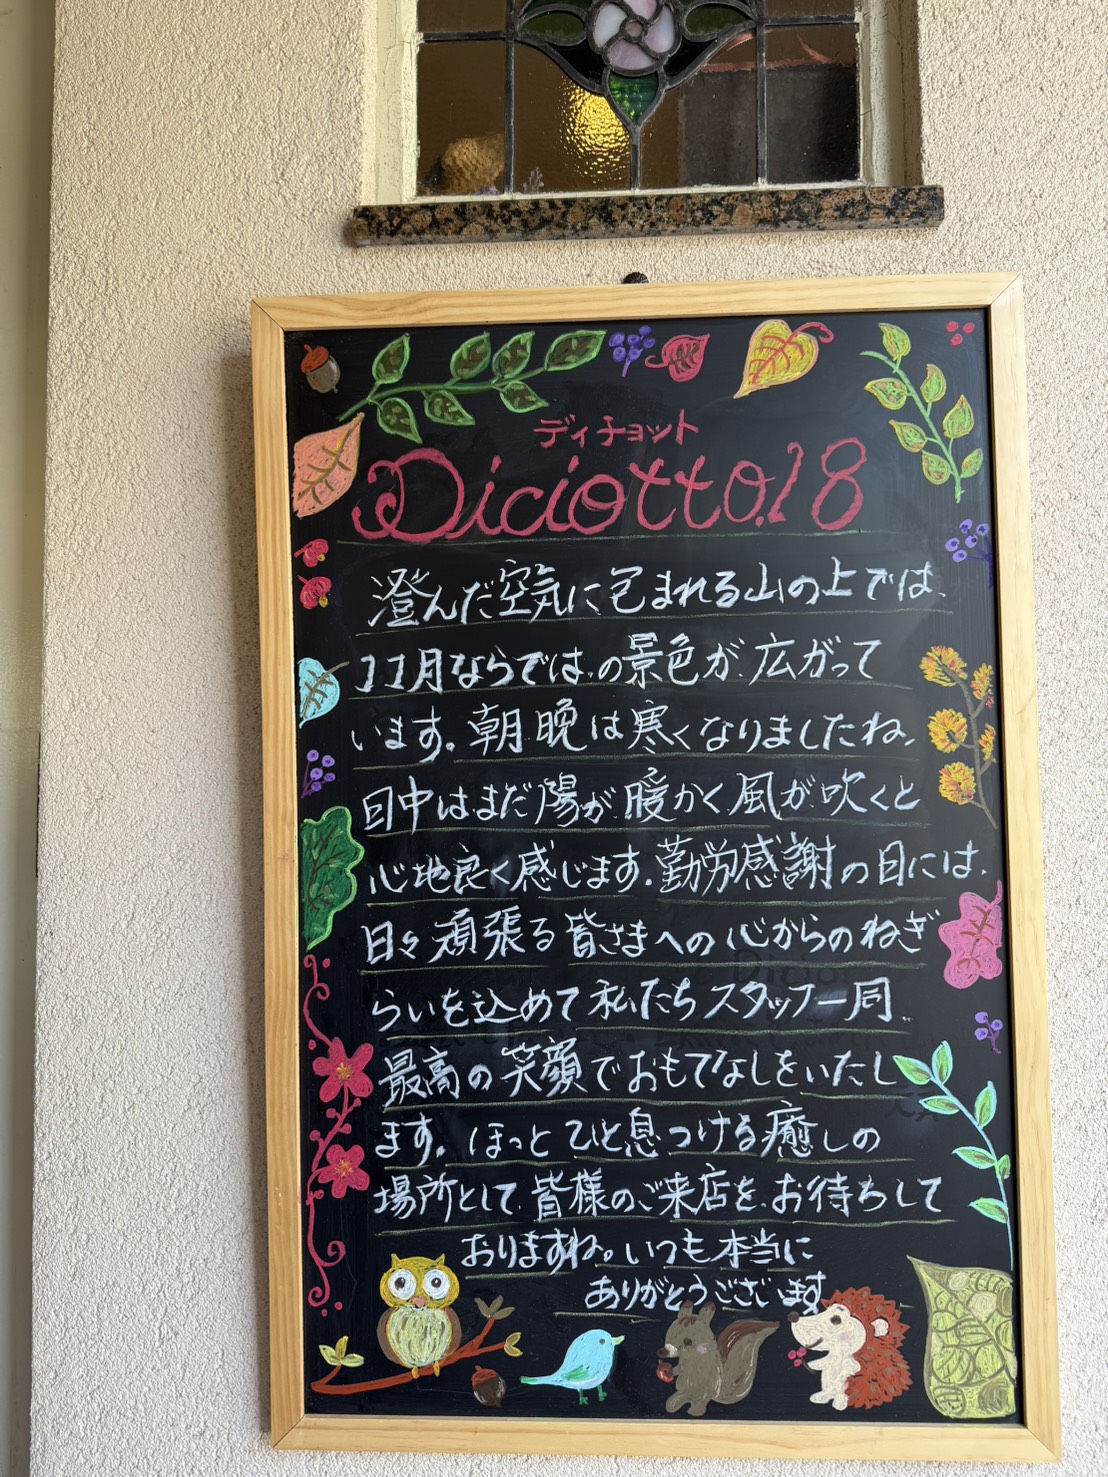 ディチョット
Diciotto.18
澄んだ空気に包まれる山の上では、
11月ならではの景色が広がって
います。朝晩は寒くなりましたね、
日中はまだ陽が暖かく風が吹くと
心地良く感じます。勤労感謝の日には、
日々頑張る皆さまへの心からのねぎ
らいを込めて私たちスタッフ一同
最高の笑顔でおもてなしをいたし
ます。ほっとひと息つける癒しの
場所として皆様のご来店をお待ちして
おりますね。いつも本当に
ありがとうございます